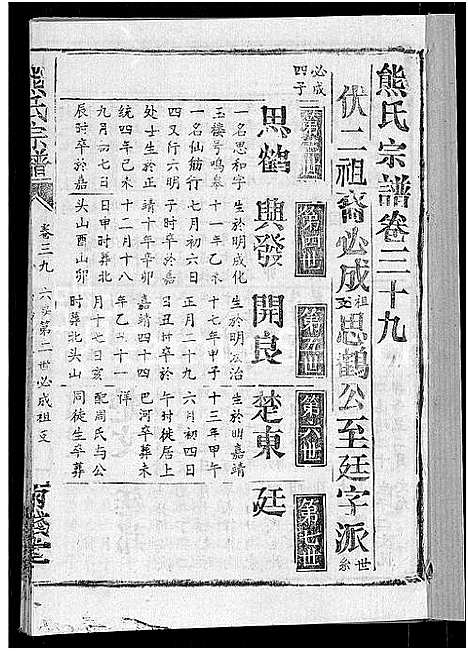 熊氏宗譜卷三十九
伏二祖裔必成祖支思鶴公至廷字派世系
必成四子
第三世
第四世
第五世
第六世
第七世
思鶴
興發
開良
楚東
廷
一名思和字
玉樓号鳴皋
一名仙舫行
四又行六明
处士生於正
統四年己未
九月初七日
辰时卒於嘉
生於明成化
十一年乙未
七月初六日
子时卒於嘉
靖十年辛卯
十二月十八
日申时葬北
头山酉山卯
生於明弘治
十七年甲子
正月二十九
日丑时卒於
嘉靖四十四
年乙丑十一
月十七日亥
时葬北头山
生於明嘉靖
十三年甲午
六月初四日
午时徙居上
巴河卒葬未
详
配周氏与公
同徙生卒葬
熊氏宗譜
卷三九
第二世必成祖支